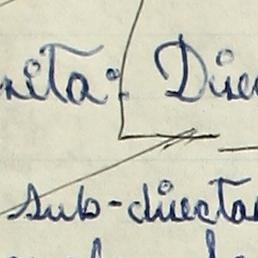 nita: Dire
sub-directa